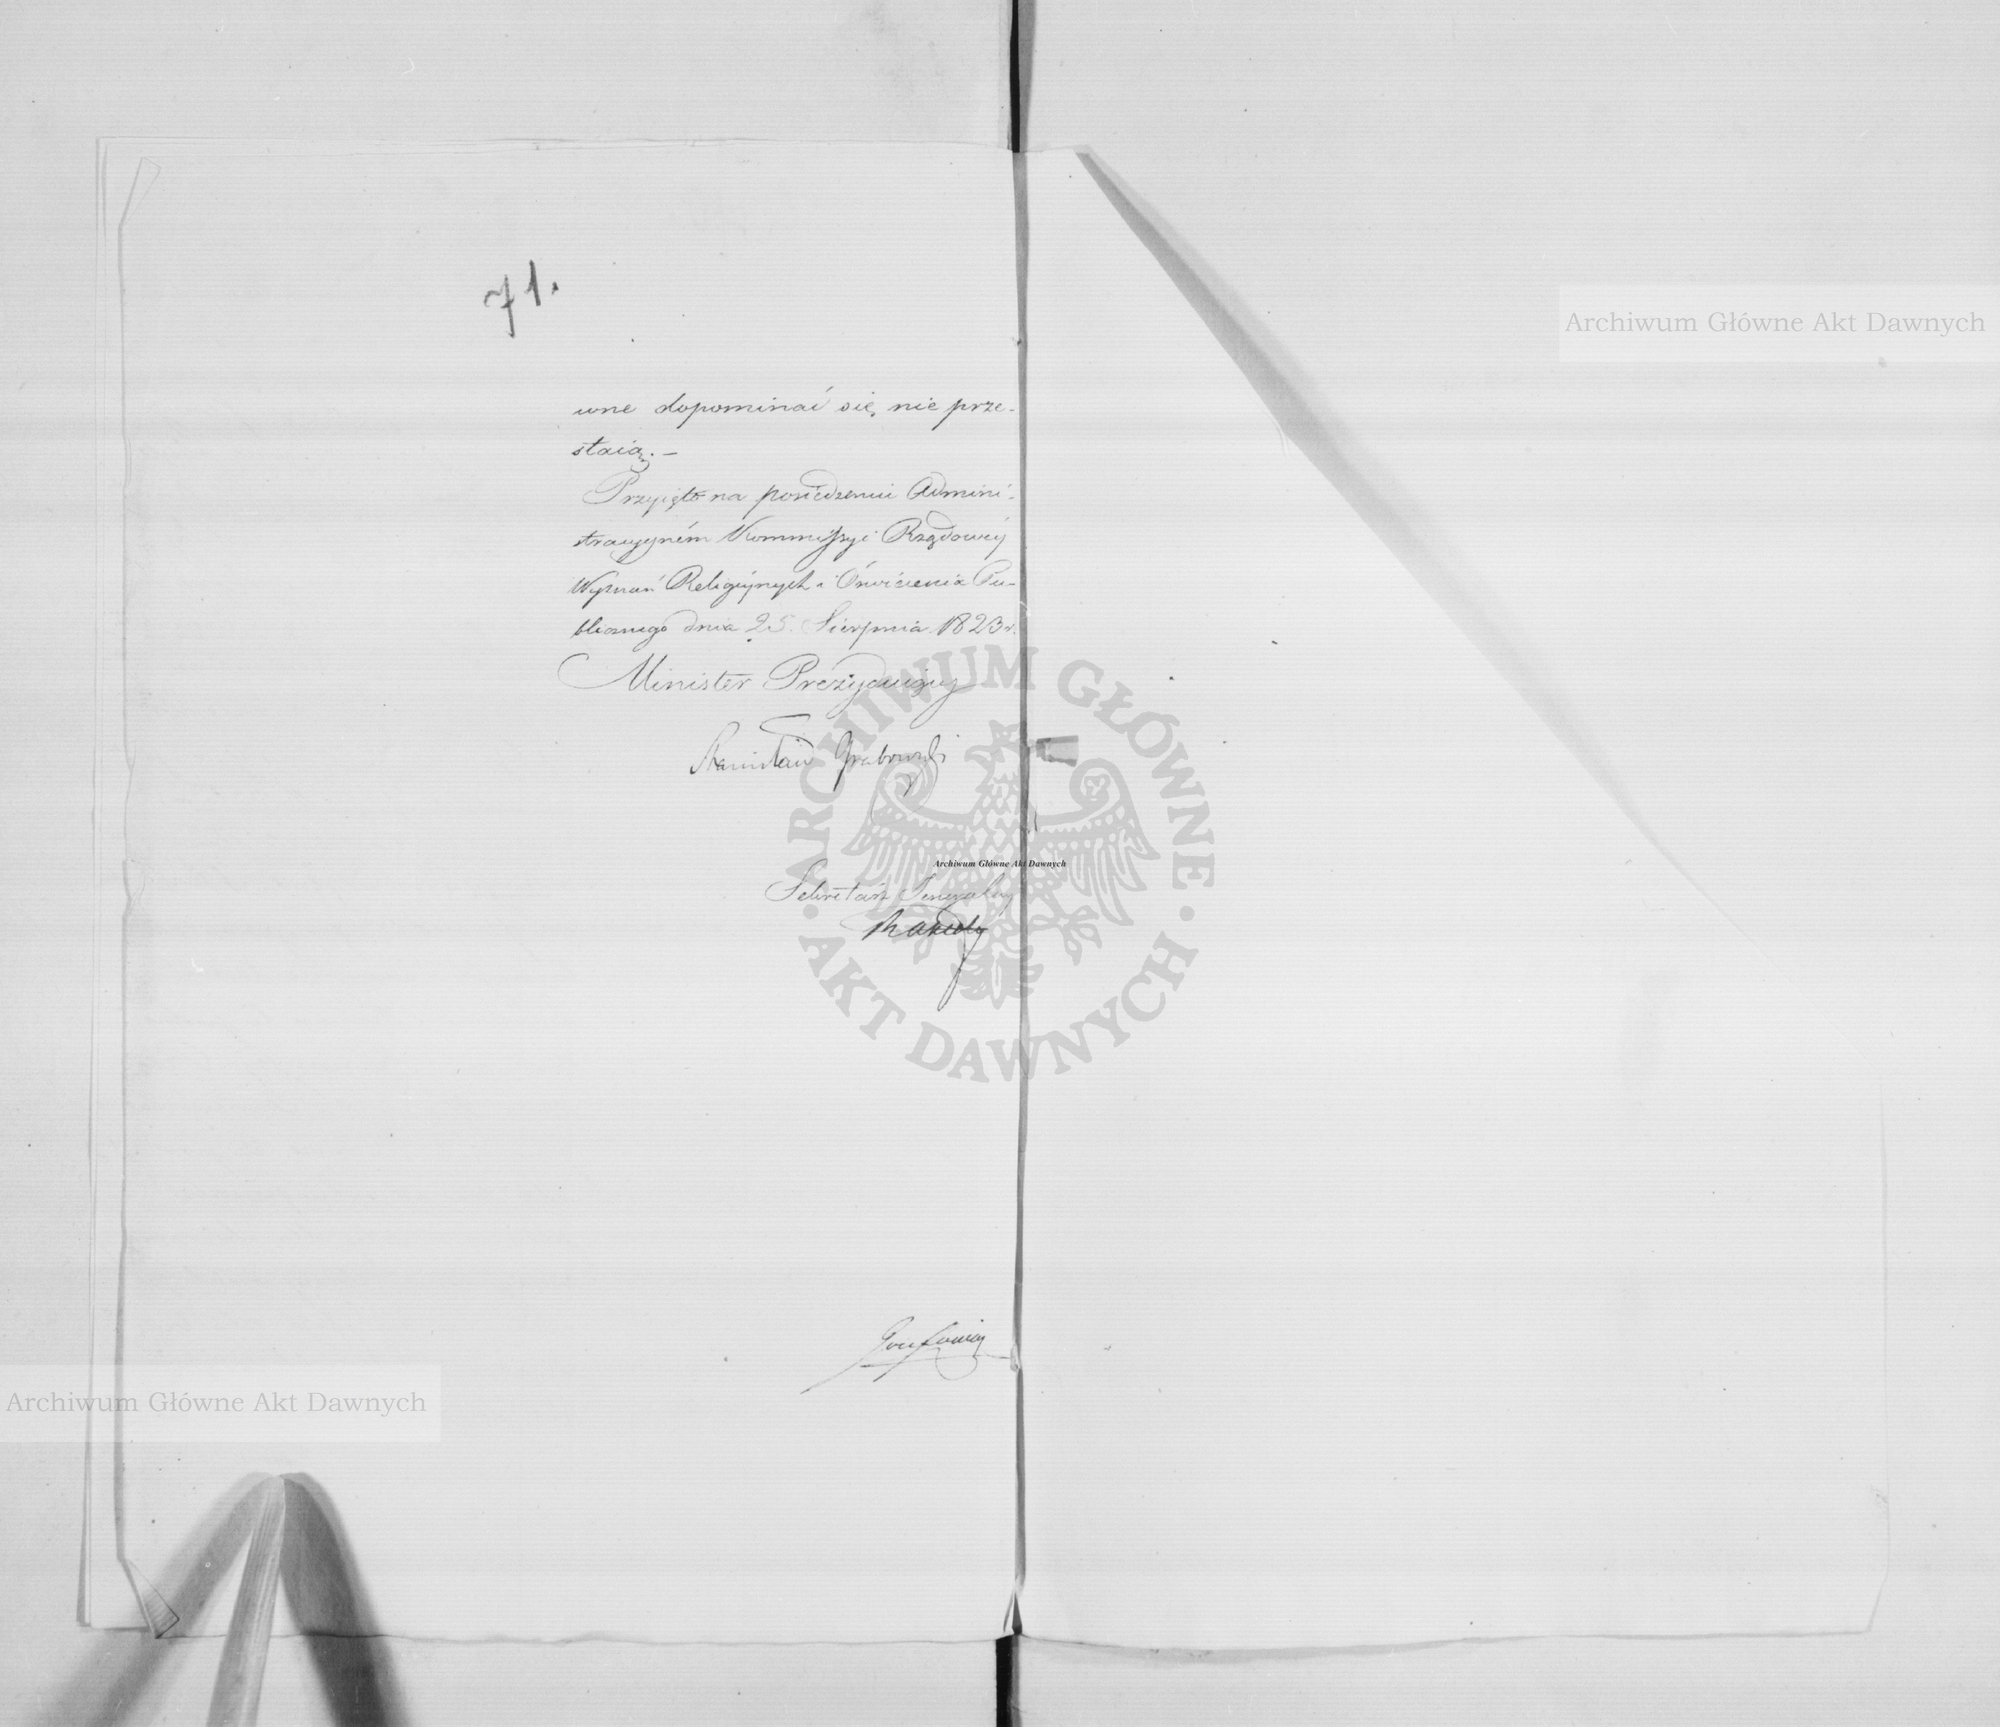 71.
wne dopominać się, nie prze-
staią. —
Przyięto na posiedzeniu Admini-
stracyyném Kommissyi Rządowéy
Wyznań Religiynych i Oświécenia Pu-
blicznego dnia 25. Sierpnia 1823 r.
Minister Prezyduiący
Stanisław Grabowski
Sekretarz Jeneralny
Archiwum Główne Akt Dawnych
Archiwum Główne Akt Dawnych
Archiwum Główne Akt Dawnych
ARCHIWUM GŁÓWNE
AKT DAWNYCH